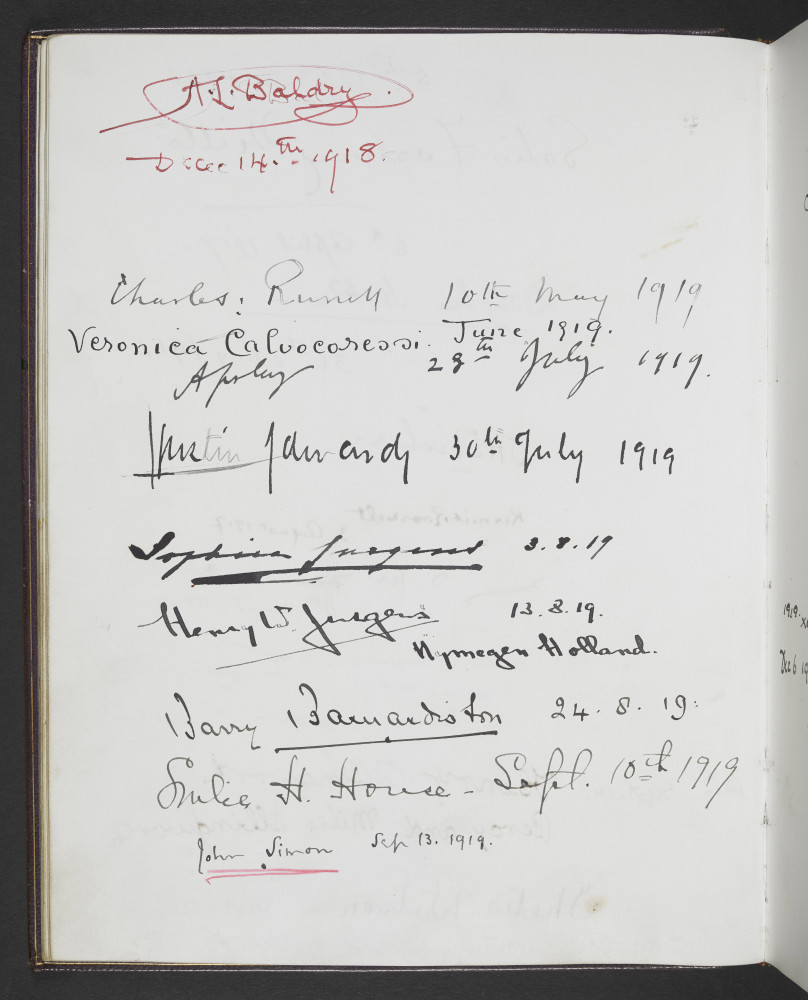 A.L. Baldry.
Dec 14.th 1918.
Charles: Russell 10th May 1919
Veronica Calvocoressi. June 1919.
Apsley 28th July 1919.
Justin Edwards 30th July 1919
Sophia Jurgens 3.8.19
Henry W. Jurgens 13.8.19.
Nymegen Holland.
Barry Barnardiston 24.8.19.
H. House - Sept. 10th 1919
John Simon Sep 13. 1919.
1919.
Dec 6